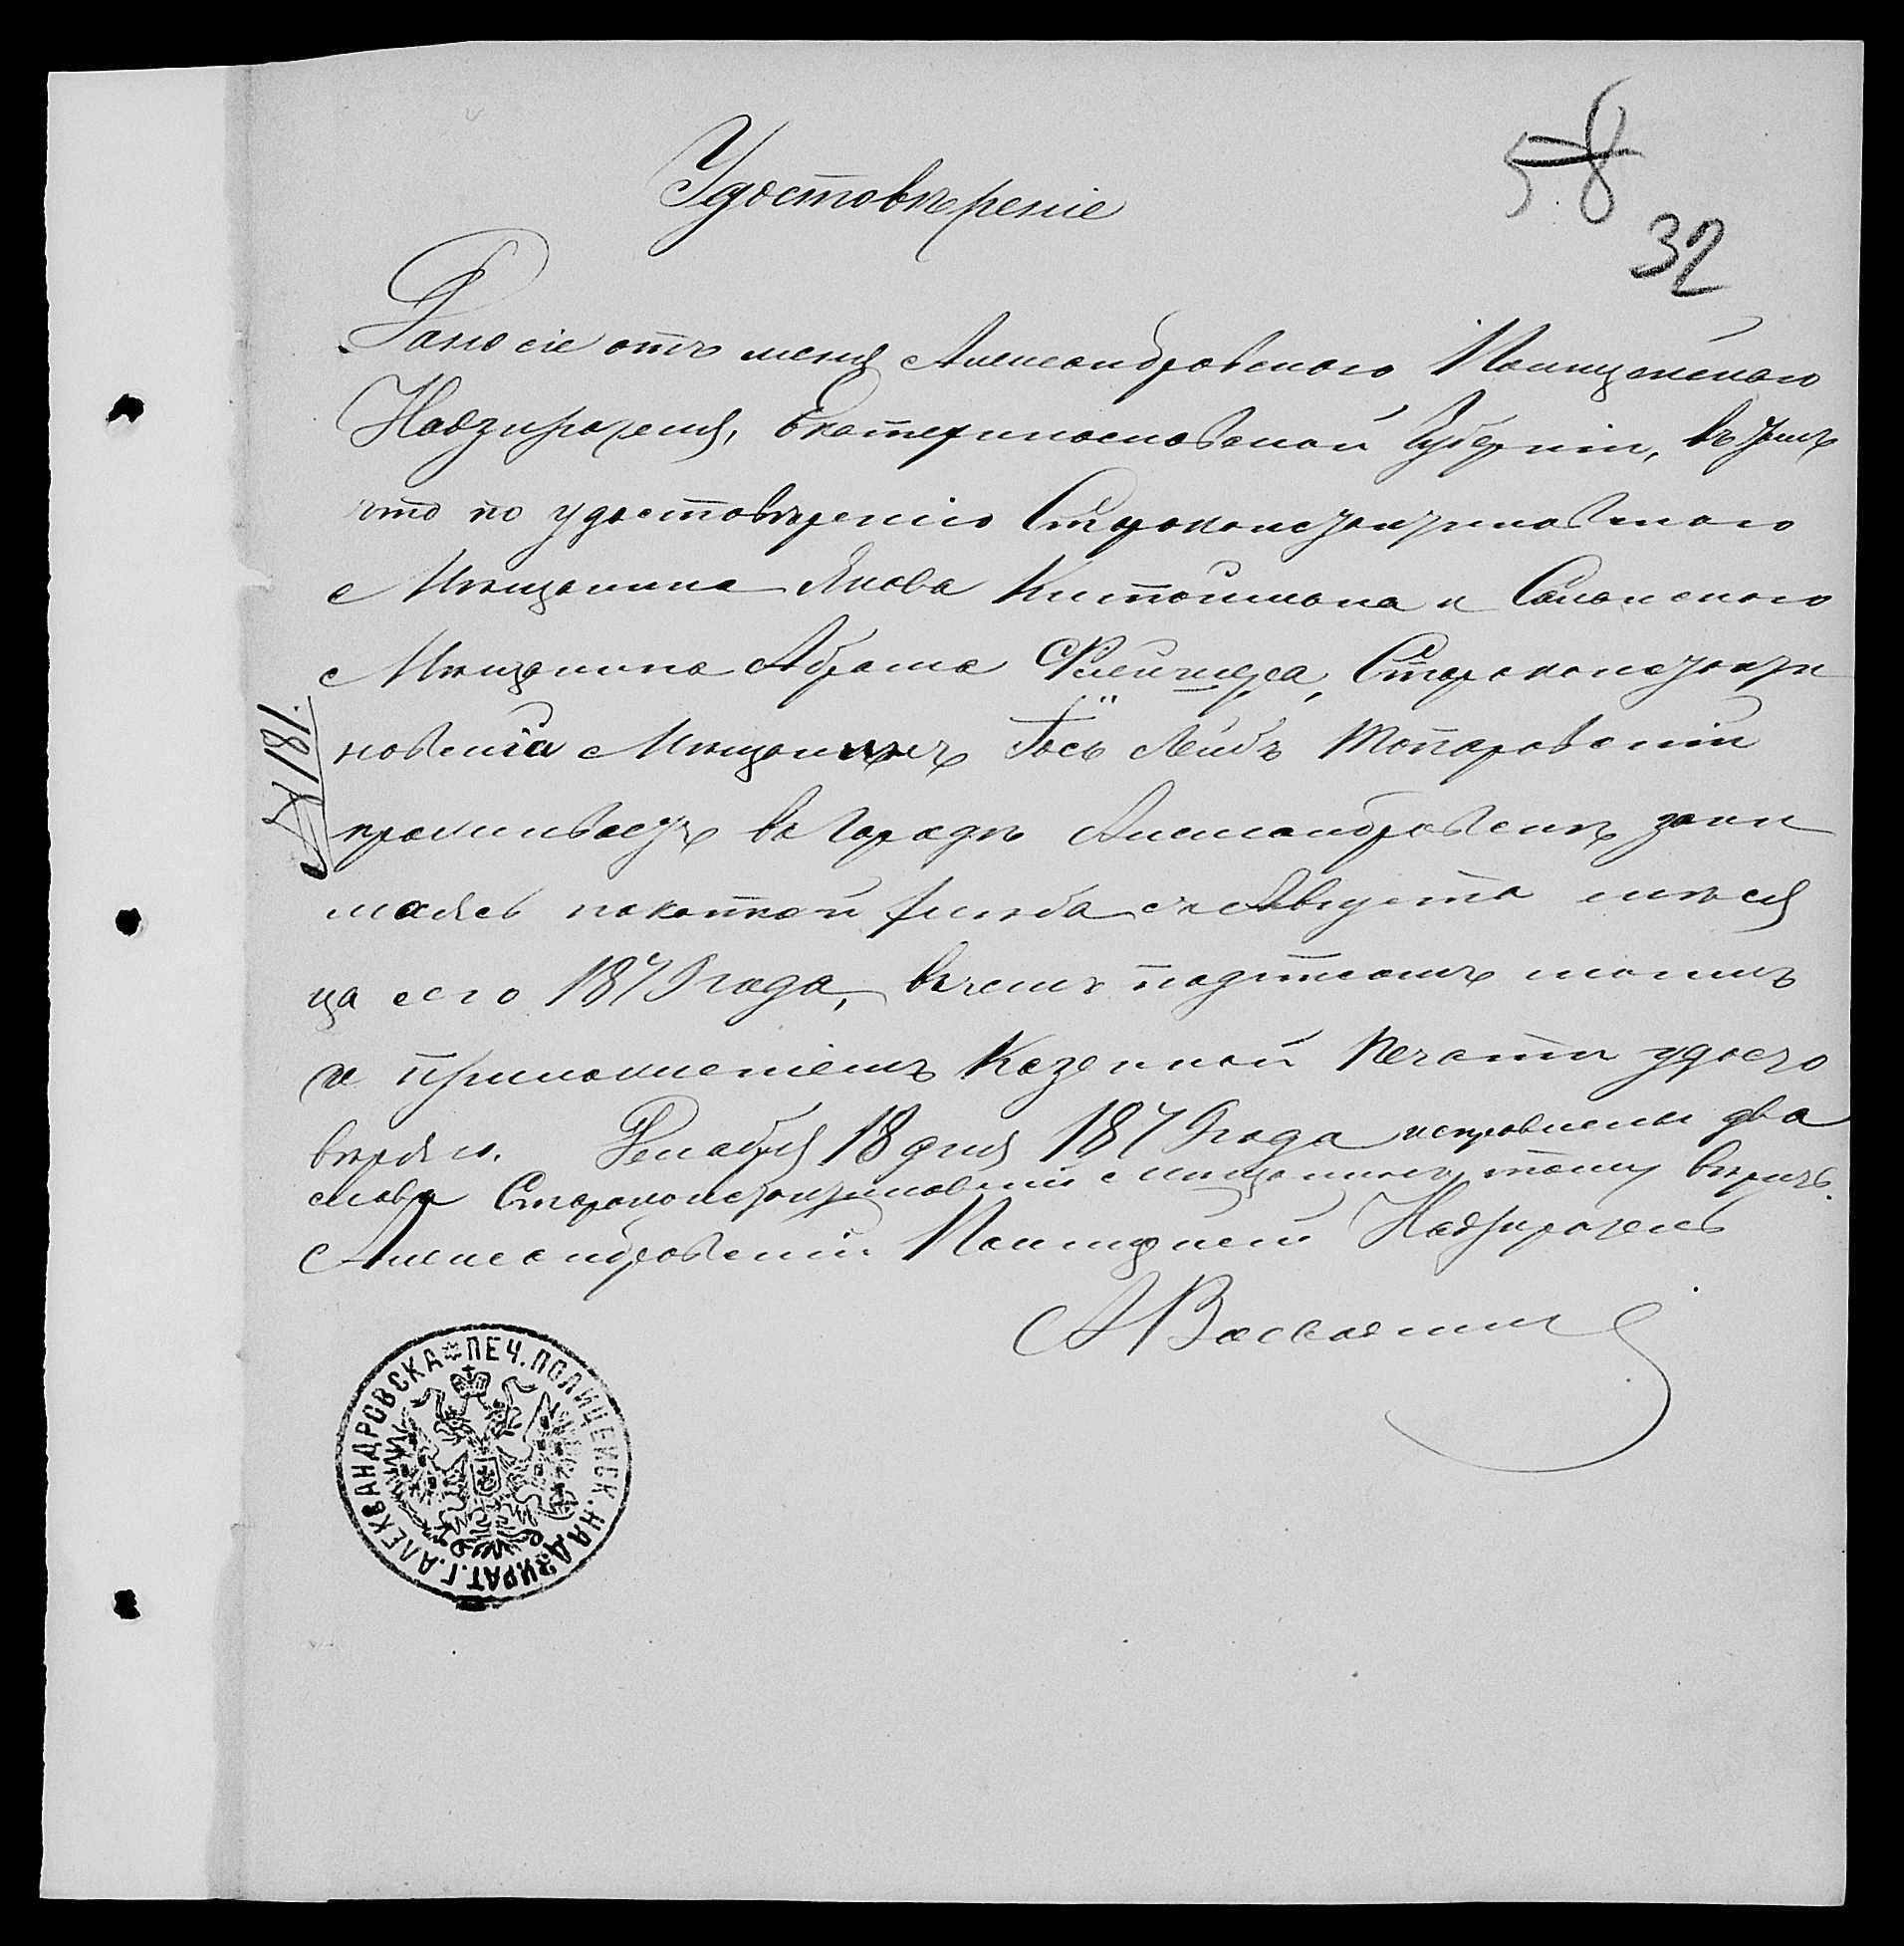 58
32
Удостовѣреніе
Дано сіе отъ меня Александровскаго Полицейскаго
Надзирателя, Екатеринославской Губерніи, въ томъ
что по удостовѣренію Староконстантиновскаго
Мѣщанина Якова Китайшана и
Мѣщанина Абрама Флейшера, Староконстанти
новскій Мѣщанинъ Іось Лейбъ Топаровскій
проживаетъ въ Городѣ Александровскѣ, зани
маясь покупкой хлѣба съ Августа мѣся
ца сего 1879 года, въ чемъ подписомъ моимъ
и приложеніемъ Казенной Печати удосто
вѣряю. Декабря 18 дня 1879 года исправлены два
слова Староконстантиновскій мѣщанинъ тому вѣрить.
Александровскій Полицейскій Надзиратель
№ 181.
ПЕЧ. ПОЛИЦЕЙСК. НАДЗИРАТ. Г. АЛЕКСАНДРОВСКА